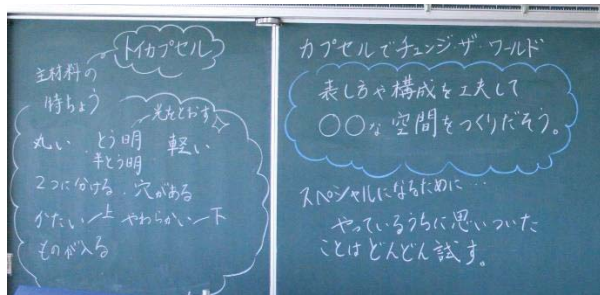 トイカプセル
主材料の
特ちょう
光をとおす
丸い とう明 軽い
半とう明
2つに分ける 穴がある
かたい/上 やわらかい/下
ものが入る
カプセルでチェンジ・ザ・ワールド
表し方や構成を工夫して
○○な空間をつくりだそう。
スペシャルになるために…
やっているうちに思いついた
ことはどんどん試す。